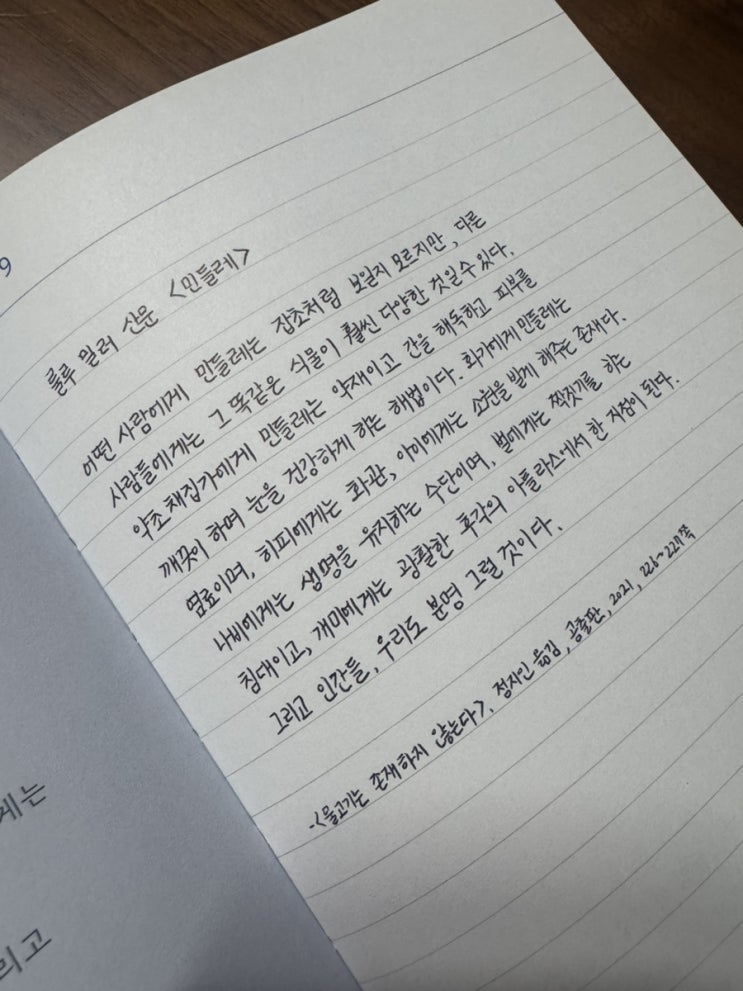 9
룰루 밀러 산문 <민들레>
어떤 사람에게 민들레는 잡초처럼 보일지 모르지만, 다른
사람들에게는 그 똑같은 식물이 훨씬 다양한 것일 수 있다.
약초 채집가에게 민들레는 약재이고 간을 해독하고 피부를
깨끗이 하며 눈을 건강하게 하는 해법이다. 화가에게 민들레는
염료이며, 히피에게는 화관, 아이에게는 소원을 빌게 해주는 존재다.
나비에게는 생명을 유지하는 수단이며, 벌에게는 짝짓기를 하는
침대이고, 개미에게는 광활한 후각의 아틀라스에서 한 지점이 된다.
그리고 인간들, 우리도 분명 그럴 것이다.
-<물고기는 존재하지 않는다>, 정지인 옮김, 곰출판, 2021, 226~227쪽
게는
리고